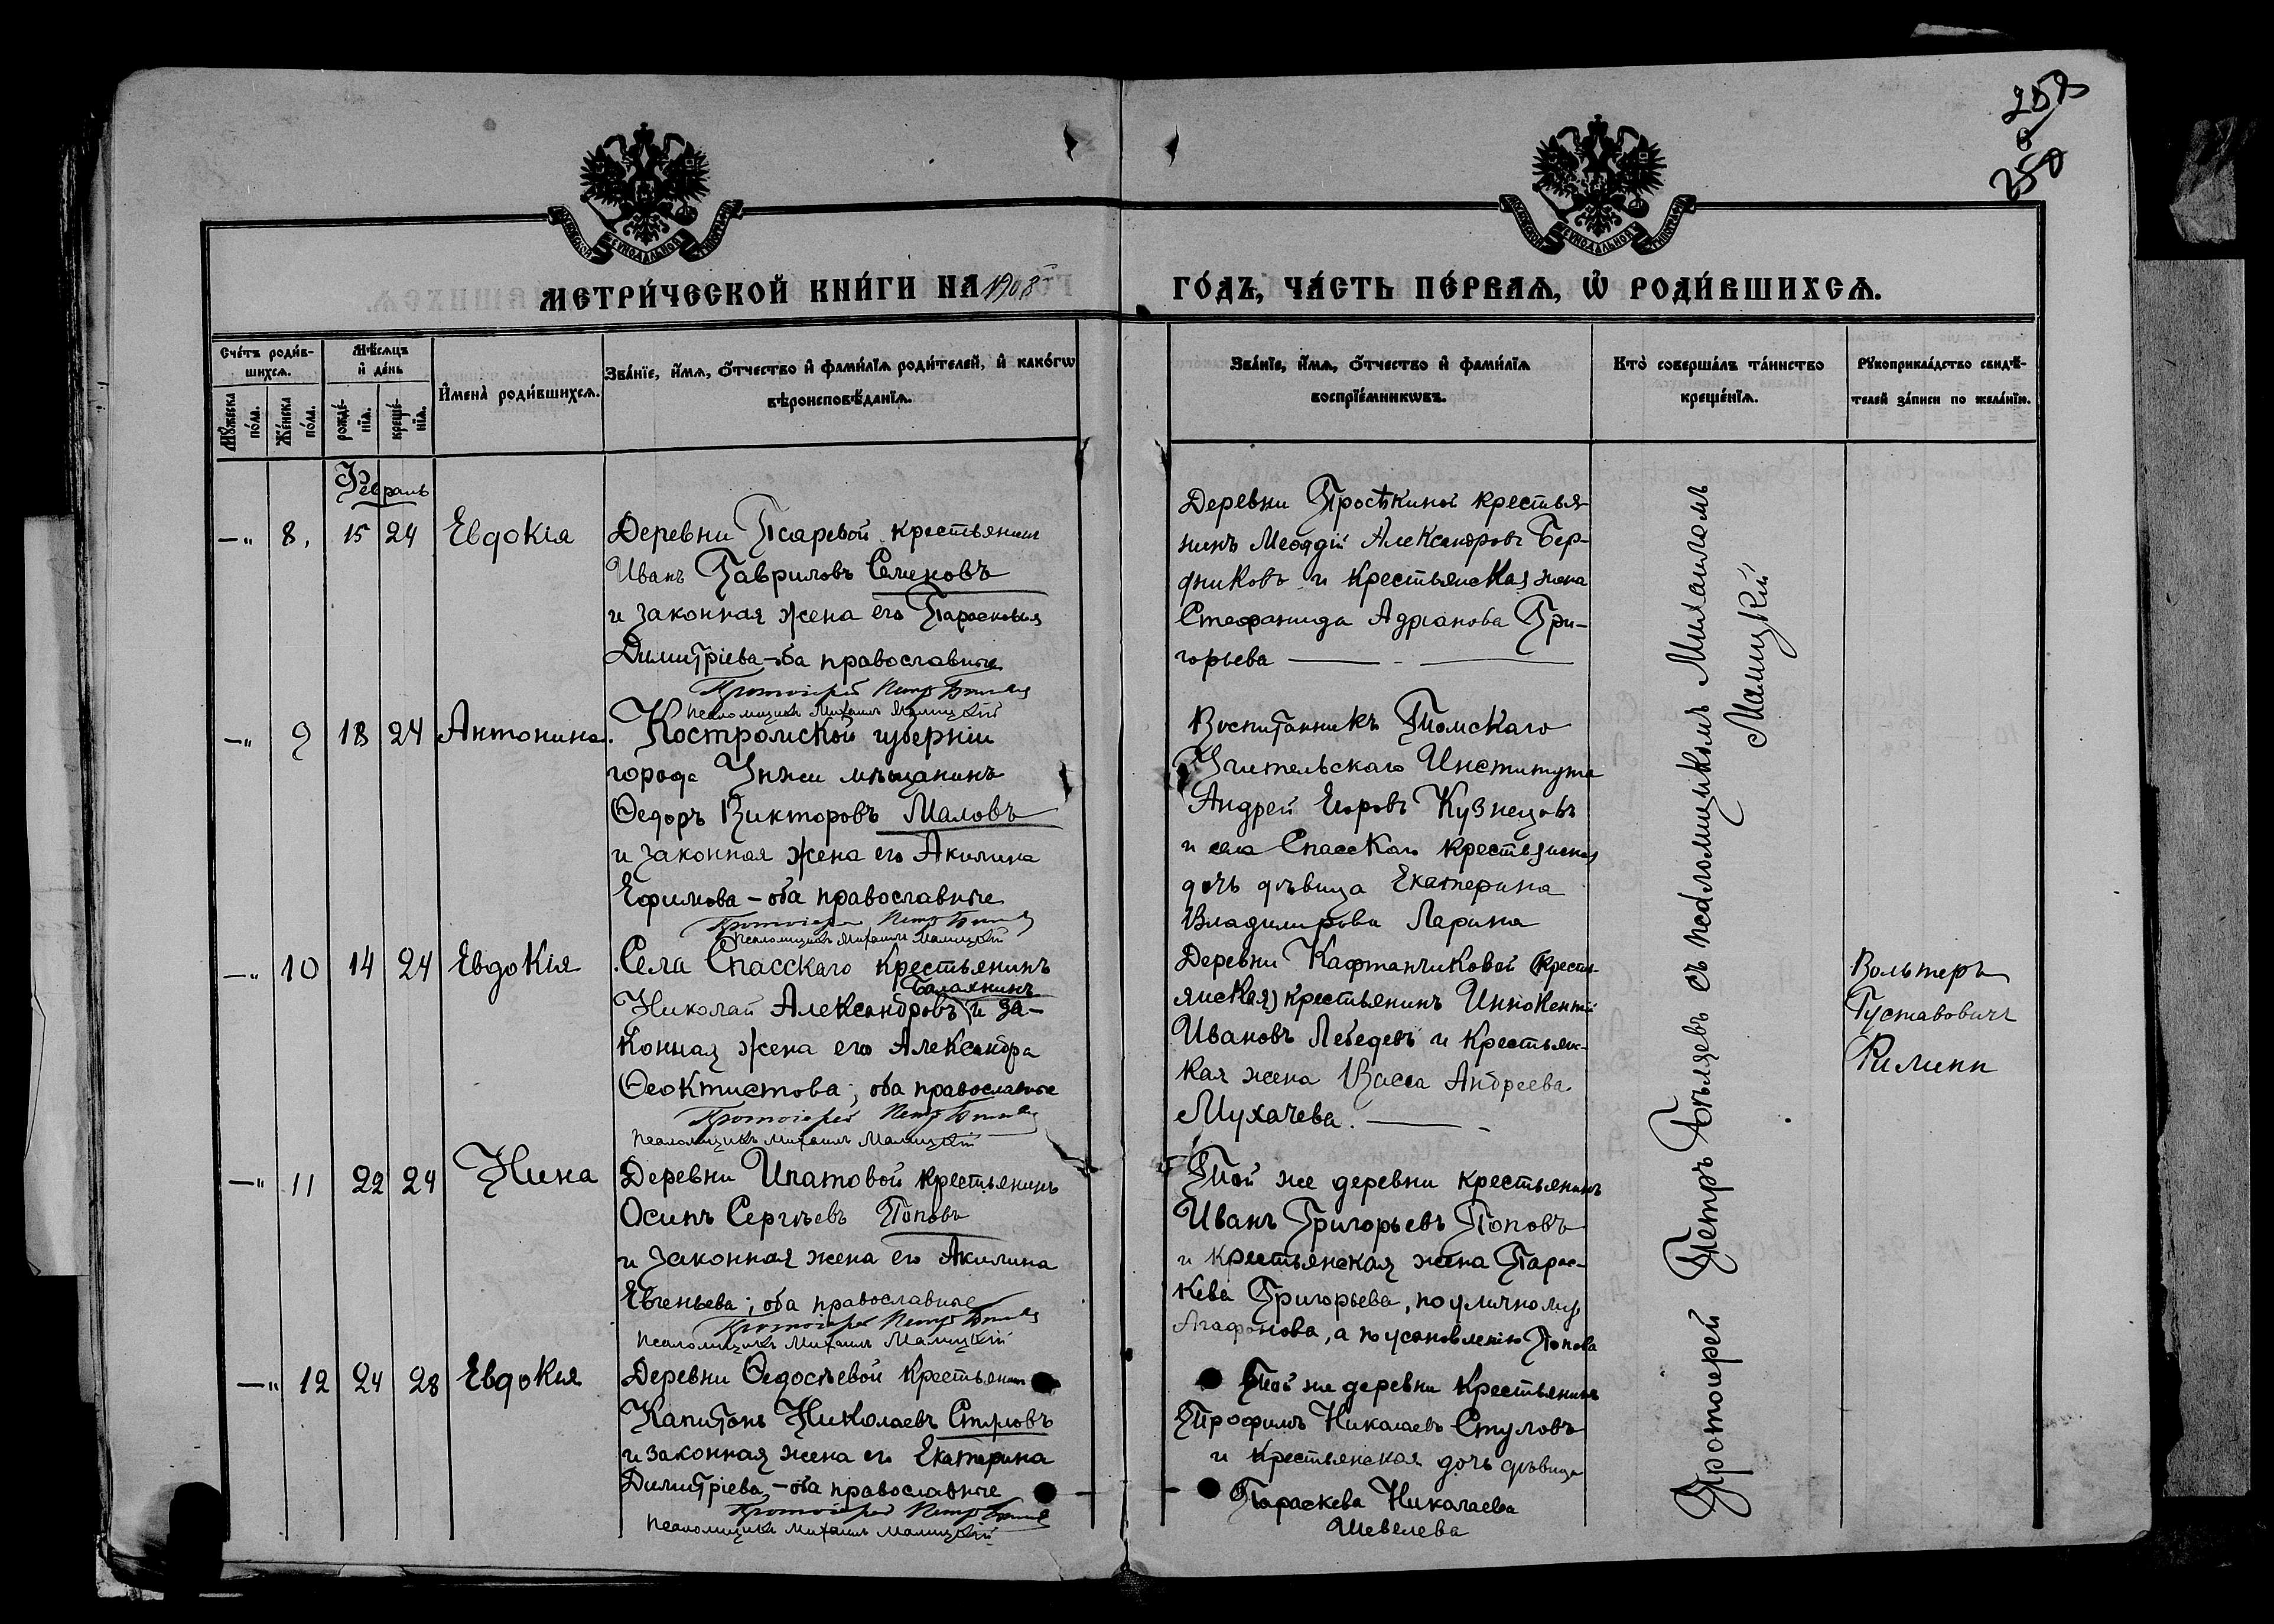 258
250
МЕТРИ́ЧЕСКОЙ КНИ́ГИ НА 1908
ГО́ДЪ, ЧА́СТЬ ПЕ́РВАѦ, Ѡ҆ РОДИ́ВШИХСѦ.
Сче́тъ роди́в-
шихсѧ.
Мѣ́сѧцъ
и҆ де́нь
И҆мена̀ роди́вшихсѧ.
Зва́нїе, и҆́мѧ, ѻ҆́тчество и҆ фами́лїѧ роди́телей, и҆ како́гѡ
вѣроисповѣ́данїѧ.
Мꙋ́жеска
по́ла.
Же́нска
по́ла.
рожде́-
нїѧ.
креще́-
нїѧ.
Зва́нїе, и҆́мѧ, ѻ҆́тчество и҆ фами́лїѧ
воспрїе́мникѡвъ.
Кто̀ соверша́лъ та́инство
креще́нїѧ.
Рꙋкоприкла́дство свидѣ́-
телей за́писи по жела́нїю.
Февраль
—„ 8, 15 24 Евдокіа
Деревни Псаревой крестьянин
Иванъ Гавриловъ Семеновъ
и законная жена его Парасковья
Димитріева - оба православные
Протоіерей Петр
Псаломщикъ Михаилъ Малицкій
Деревни Просѣкиной крестья-
нинъ Меѳодій Александровъ Бер-
дниковъ и крестьянская жена
Стефанида Адріанова Гри-
горьева
—„ 9 18 24 Антонина.
Костромской губерніи
города Унжи мѣщанинъ
Ѳедоръ Викторовъ Маловъ
и законная жена его Акилина
Ефимова - оба православные
Протоіерей Петр
Псаломщикъ Михаилъ Малицкій
Воспитанникъ Томскаго
Учительскаго Института
Андрей Егоровъ Кузнецовъ
и села Спасскаго крестьянская
дочь дѣвица Екатерина
Владимирова Ларина
—„ 10 14 24 Евдокія
Села Спасскаго крестьянинъ
Балахнинъ
Николай Александровъ и за-
конная жена его Александра
Ѳеоктистова; оба православные
Протоіерей Петр
Псаломщикъ Михаилъ Малицкій
Деревни Кафтанчиковой (крестья-
янская) крестьянинъ Иннокентій
Ивановъ Лебедевъ и крестьянс-
кая жена Васса Андреева
Мухачева.
Вольтеръ
Густавовичъ
—„ 11 22 24 Нина
Деревни Ипатовой крестьянинъ
Осипъ Сергѣевъ Поповъ
и законная жена его Акилина
Евгеньева; оба православные
Протоіерей Петр
Псаломщикъ Михаилъ Малицкій
Той же деревни крестьянинъ
Иванъ Григорьевъ Поповъ
и крестьянская жена Парас-
кева Григорьева, по уличному
Агафонова, а по усыновленію Попова
—„ 12 24 28 Евдокія
Деревни Ѳедосѣевой Крестьянин
Капитонъ Николаевъ Стуловъ
и законная жена его Екатерина
Димитріева, - оба православные
Протоіерей Петр
Псаломщикъ Михаилъ Малицкій
Той же деревни крестьянинъ
Трофимъ Николаевъ Стуловъ
и крестьянская дочь дѣвица
Параскева Николаева
Шевелева
Протоіерей Петръ съ псаломщикомъ Михаиломъ
Малицкій